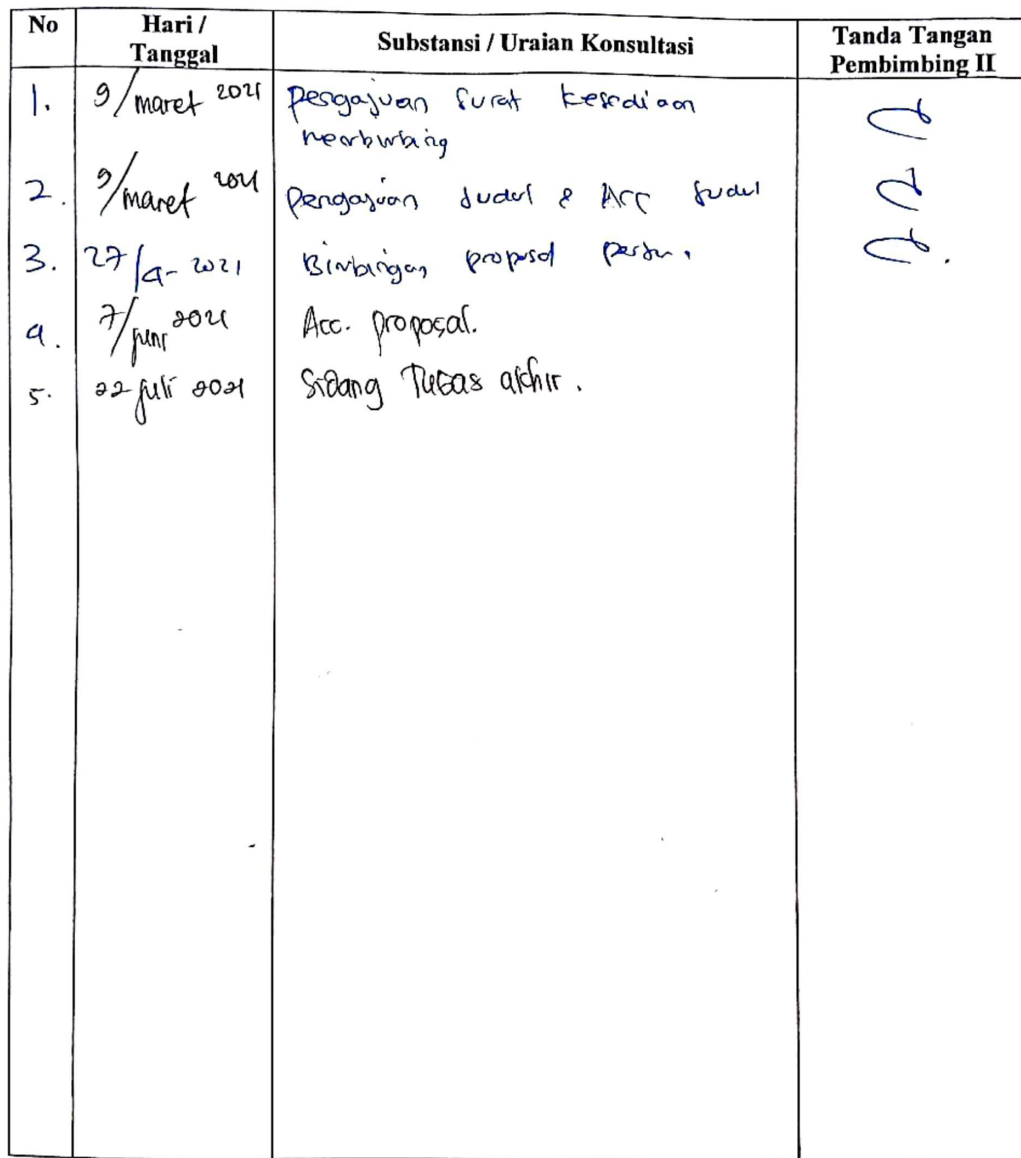 No Hari / Tanggal Substansi / Uraian Konsultasi Tanda Tangan Pembimbing II
1. 9/maret 2021 Pengajuan Surat kesediaan
membimbing
2. 9/maret 2021 Pengajuan Judul & Acc Judul
3. 27/4-2021 Bimbingan proposal
4. 7/juni 2021 Acc. proposal.
5. 22 juli 2021 Sidang Tugas akhir.